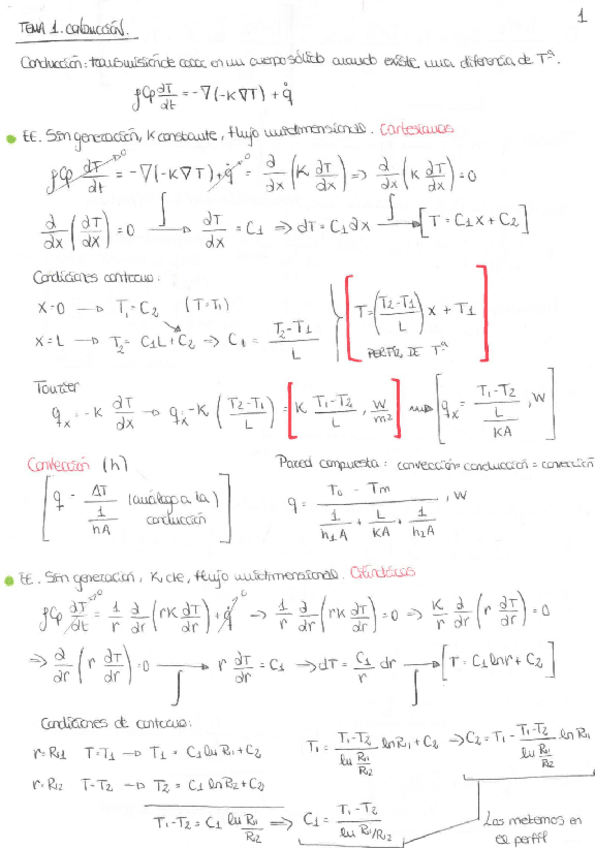 1
TEMA 1. CONDUCCIÓN.
Conducción: transmisión de calor en un cuerpo sólido cuando existe una diferencia de Tª.
ρCp dT/dt = -∇(-K∇T) + q̇
EE. Sin generación, K constante, flujo unidimensional. Cartesianas
ρCp dT/dt →0 = -∇(-K∇T) + q̇ →0 = d/dx (K dT/dx) ⇒ d/dx (K dT/dx) = 0
d/dx (dT/dx) = 0 ∫→ dT/dx = C1 ⇒ dT = C1 dx ∫→ [T = C1x + C2]
Condiciones contorno:
x=0 → T1 = C2 (T=T1)
x=L → T2 = C1L + C2 ⇒ C1 = (T2-T1)/L
[T = ((T2-T1)/L) x + T1
PERFIL DE Tª]
Fourier
qx = -K dT/dx → qx = -K ((T2-T1)/L) = [K (T1-T2)/L, W/m2] ⇝ [qx = (T1-T2)/(L/KA), W]
Convección (h)
[q = ΔT/(1/hA) (análogo a la conducción)]
Pared compuesta: convección=conducción=convección
q = (T0 - Tm)/(1/h1A + L/KA + 1/h2A), W
EE. Sin generación, K cte, flujo unidimensional. Cilíndricas
ρCp dT/dt →0 = 1/r d/dr (rK dT/dr) + q̇ →0 → 1/r d/dr (rK dT/dr) = 0 ⇒ K/r d/dr (r dT/dr) = 0
⇒ d/dr (r dT/dr) = 0 ∫→ r dT/dr = C1 → dT = C1/r dr ∫→ [T = C1 lnr + C2]
Condiciones de contorno:
r=R11 T=T1 → T1 = C1 ln R1 + C2
r=R12 T=T2 → T2 = C1 ln R2 + C2
T1-T2 = C1 ln R11/R12 ⇒ C1 = (T1-T2)/(ln R11/R12)
T1 = (T1-T2)/(ln R11/R12) ln R1 + C2 → C2 = T1 - (T1-T2)/(ln R11/R12) ln R1
Las metemos en
el perfil